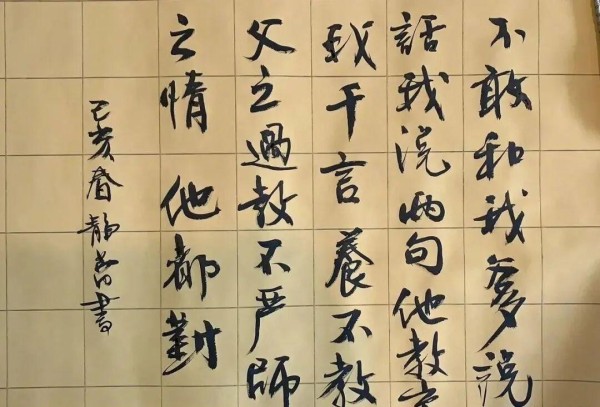 不敢和我爹説
話我説两句他教
我千言養不教
父之過教不严師
之惰 他都對
己亥春静書